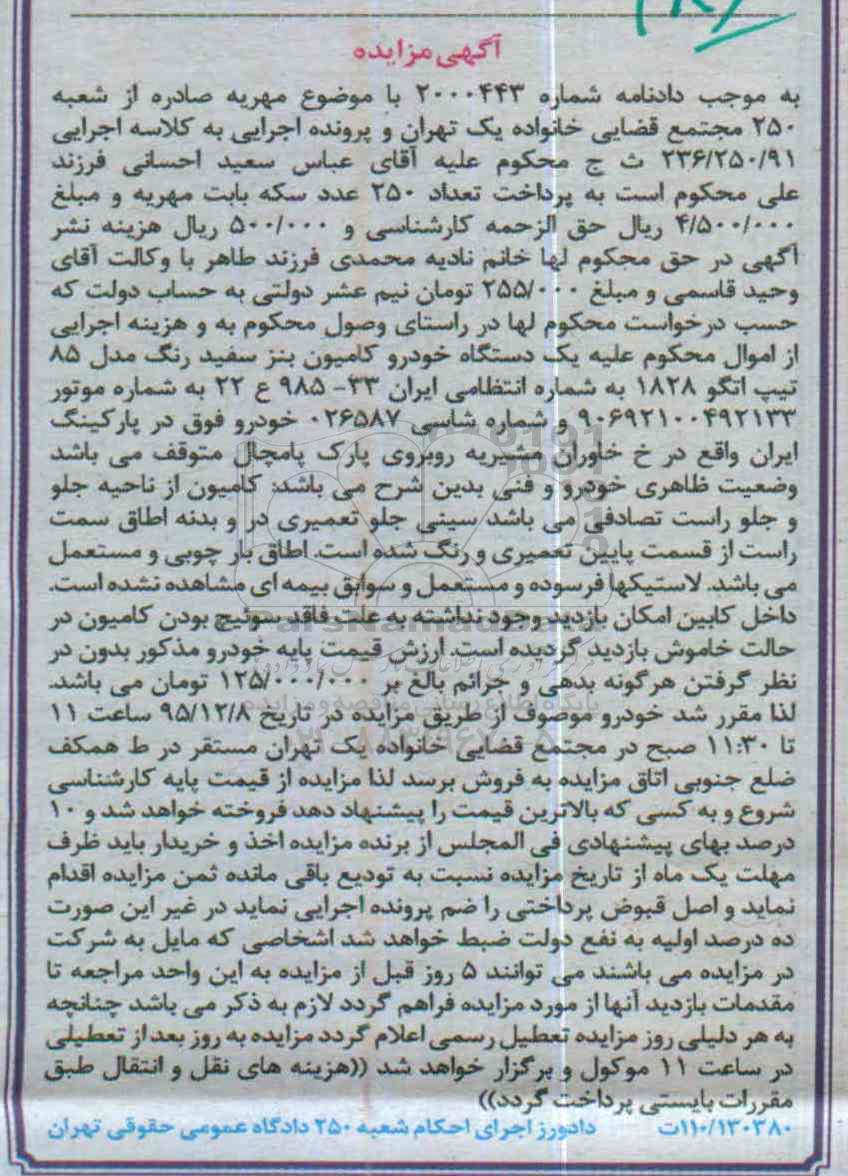 آگهی مزایده
به موجب دادنامه شماره ۲۰۰۰۴۴۳ با موضوع مهریه صادره از شعبه
۲۵۰ مجتمع قضایی خانواده یک تهران و پرونده اجرایی به کلاسه اجرایی
۲۳۶/۲۵۰/۹۱ ث ج محکوم علیه آقای عباس سعید احسانی فرزند
علی محکوم است به پرداخت تعداد ۲۵۰ عدد سکه بابت مهریه و مبلغ
۴/۵۰۰/۰۰۰ ریال حق الزحمه کارشناسی و ۵۰۰/۰۰۰ ریال هزینه نشر
آگهی در حق محکوم لها خانم نادیه محمدی فرزند طاهر با وکالت آقای
وحید قاسمی و مبلغ ۲۵۵/۰۰۰ تومان نیم عشر دولتی به حساب دولت که
حسب درخواست محکوم لها در راستای وصول محکوم به و هزینه اجرایی
از اموال محکوم علیه یک دستگاه خودرو کامیون بنز سفید رنگ مدل ۸۵
تیپ اتگو ۱۸۲۸ به شماره انتظامی ایران ۳۳- ۹۸۵ ع ۲۲ به شماره موتور
۹۰۶۹۲۱۰۰۴۹۲۱۳۳ و شماره شاسی ۰۲۶۵۸۷ خودرو فوق در پارکینگ
ایران واقع در خ خاوران مشیریه روبروی پارک پامچال متوقف می باشد
وضعیت ظاهری خودرو و فنی بدین شرح می باشد: کامیون از ناحیه جلو
و جلو راست تصادفی می باشد سینی جلو تعمیری در و بدنه اطاق سمت
راست از قسمت پایین تعمیری و رنگ شده است. اطاق بار چوبی و مستعمل
می باشد. لاستیکها فرسوده و مستعمل و سوابق بیمه ای مشاهده نشده است.
داخل کابین امکان بازدید وجود نداشته به علت فاقد سوئیچ بودن کامیون در
حالت خاموش بازدید گردیده است. ارزش قیمت پایه خودرو مذکور بدون در
نظر گرفتن هرگونه بدهی و جرائم بالغ بر ۱۲۵/۰۰۰/۰۰۰ تومان می باشد.
لذا مقرر شد خودرو موصوف از طریق مزایده در تاریخ ۹۵/۱۲/۸ ساعت ۱۱
تا ۱۱:۳۰ صبح در مجتمع قضایی خانواده یک تهران مستقر در ط همکف
ضلع جنوبی اتاق مزایده به فروش برسد لذا مزایده از قیمت پایه کارشناسی
شروع و به کسی که بالاترین قیمت را پیشنهاد دهد فروخته خواهد شد و ۱۰
درصد بهای پیشنهادی فی المجلس از برنده مزایده اخذ و خریدار باید ظرف
مهلت یک ماه از تاریخ مزایده نسبت به تودیع باقی مانده ثمن مزایده اقدام
نماید و اصل قبوض پرداختی را ضم پرونده اجرایی نماید در غیر این صورت
ده درصد اولیه به نفع دولت ضبط خواهد شد اشخاصی که مایل به شرکت
در مزایده می باشند می توانند ۵ روز قبل از مزایده به این واحد مراجعه تا
مقدمات بازدید آنها از مورد مزایده فراهم گردد لازم به ذکر می باشد چنانچه
به هر دلیلی روز مزایده تعطیل رسمی اعلام گردد مزایده به روز بعد از تعطیلی
در ساعت ۱۱ موکول و برگزار خواهد شد ((هزینه های نقل و انتقال طبق
مقررات بایستی پرداخت گردد))
۱۱۰/۱۳۰۳۸۰ت دادورز اجرای احکام شعبه ۲۵۰ دادگاه عمومی حقوقی تهران